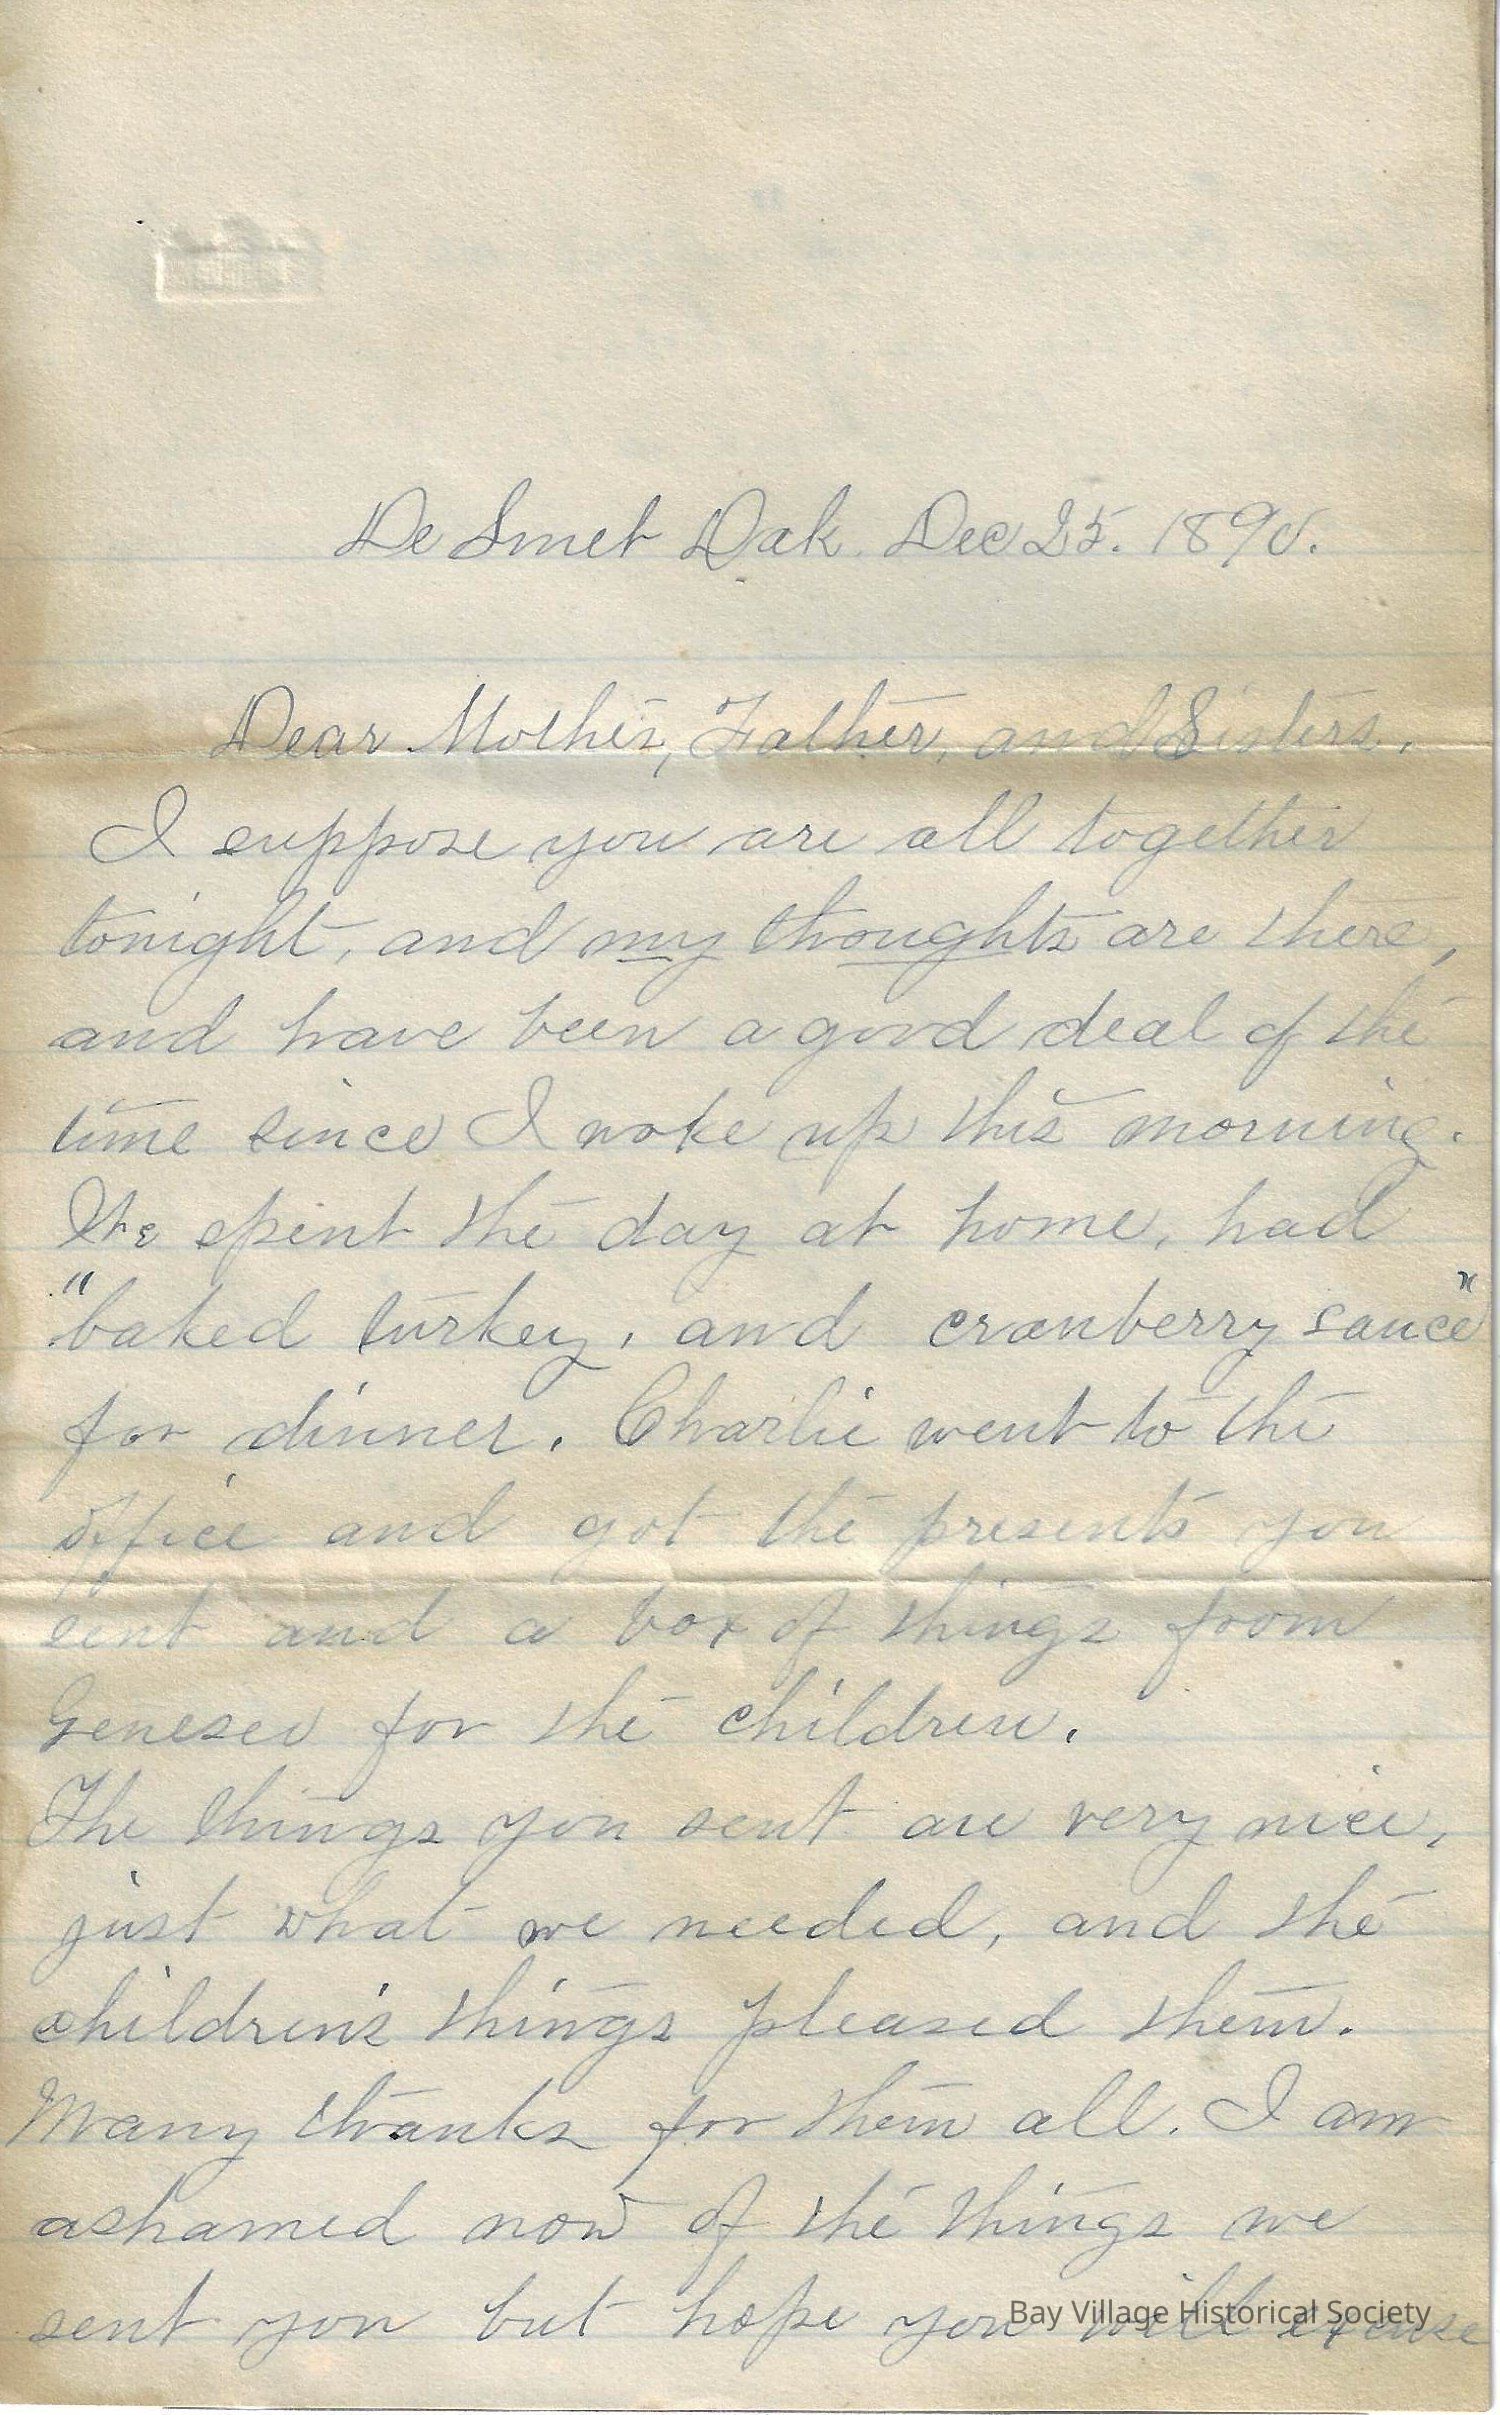 De Smet Dak. Dec 25. 1890.
Dear Mother, Father, and Sisters.
I suppose you are all together
tonight, and my thoughts are there,
and have been a good deal of the
time since I woke up this morning.
We spent the day at home, had
"baked turkey, and cranberry sauce"
for dinner. Charlie went to the
office and got the presents you
sent and a box of things from
Geneseo for the children.
The things you sent are very nice,
just what we needed, and the
children's things pleased them.
Many thanks for them all. I am
ashamed now of the things we
sent you but hope you will excuse
Bay Village Historical Society